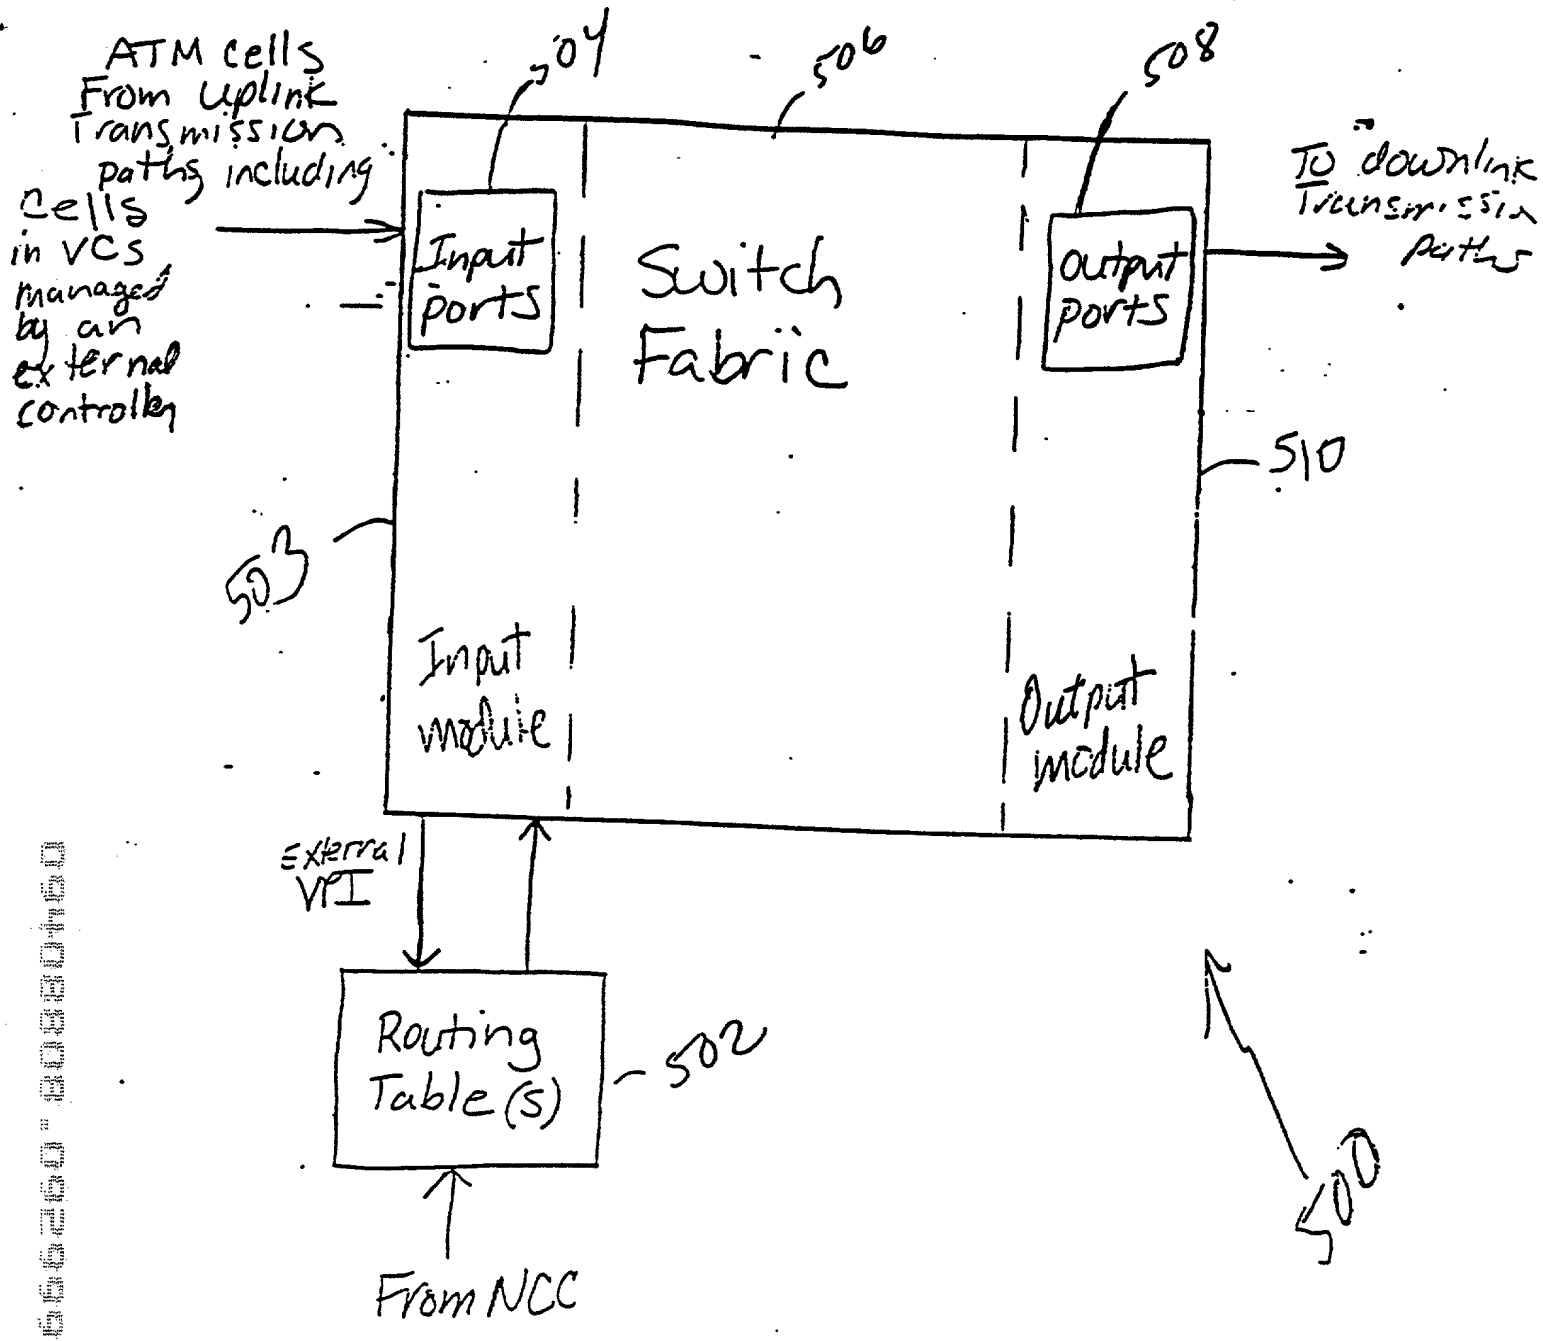 ATM cells
From Uplink
Transmission
paths including
cells
in VCs
managed
by an
external
controller
504
506
508
To downlink
Transmission
paths
Input
ports
Switch
Fabric
Output
ports
510
503
Input
module
Output
module
External
VPI
Routing
Table(s)
502
500
From NCC